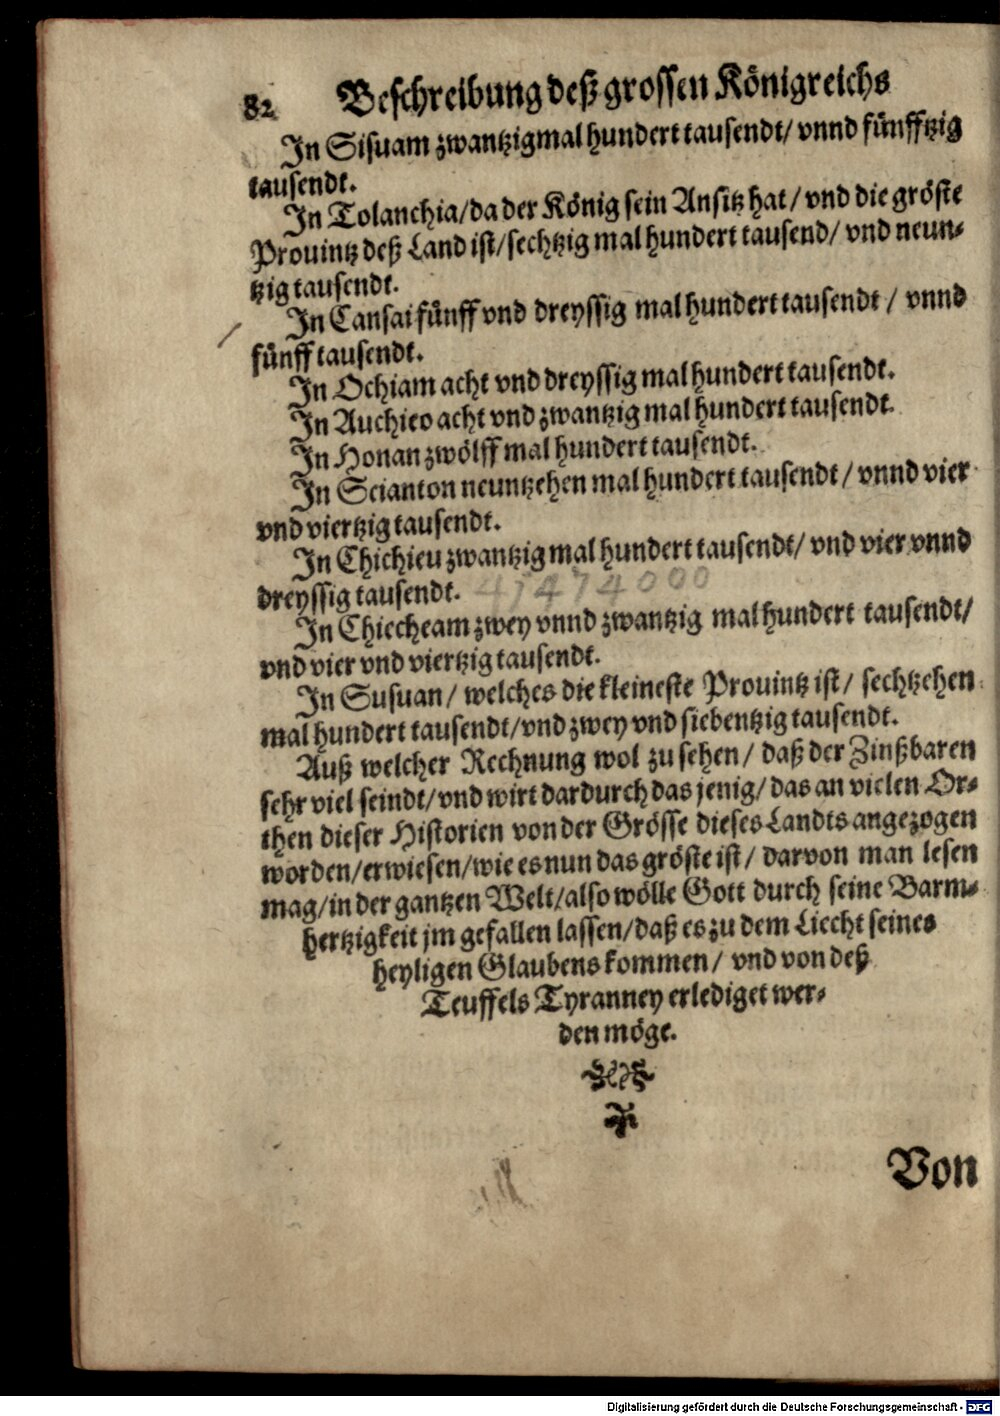 82 Beschreibung deß grossen Königreichs
In Sisuam zwantzigmal hundert tausendt/ vnnd fünfftzig
tausendt.
In Tolanchia/da der König sein Ansitz hat/ vnd die gröste
Prouintz deß Land ist/sechtzig mal hundert tausend/ vnd neun-
tzig tausendt.
In Cansai fünff vnd dreyssig mal hundert tausendt/ vnnd
fünff tausendt.
In Ochiam acht vnd dreyssig mal hundert tausendt.
In Auchieo acht vnd zwantzig mal hundert tausendt.
In Honan zwölff mal hundert tausendt.
In Scianton neuntzehen mal hundert tausendt/ vnnd vier
vnd viertzig tausendt.
In Chichieu zwantzig mal hundert tausendt/ vnd vier vnnd
dreyssig tausendt. 41474000
In Chiecheam zwey vnnd zwantzig mal hundert tausendt/
vnd vier vnd viertzig tausendt.
In Susuan/ welches die kleineste Prouintz ist/ sechtzehen
mal hundert tausendt/vnd zwey vnd siebentzig tausendt.
Auß welcher Rechnung wol zu sehen/ daß der Zinßbaren
sehr viel seindt/vnd wirt dardurch das jenig/ das an vielen Or-
then dieser Historien von der Grösse dieses Landts angezogen
worden/erwiesen/wie es nun das gröste ist/ darvon man lesen
mag/in der gantzen Welt/also wölle Gott durch seine Barm-
hertzigkeit jm gefallen lassen/daß es zu dem Liecht seines
heyligen Glaubens kommen/ vnd von deß
Teuffels Tyranney erlediget wer-
den möge.
Von
Digitalisierung gefördert durch die Deutsche Forschungsgemeinschaft - DFG